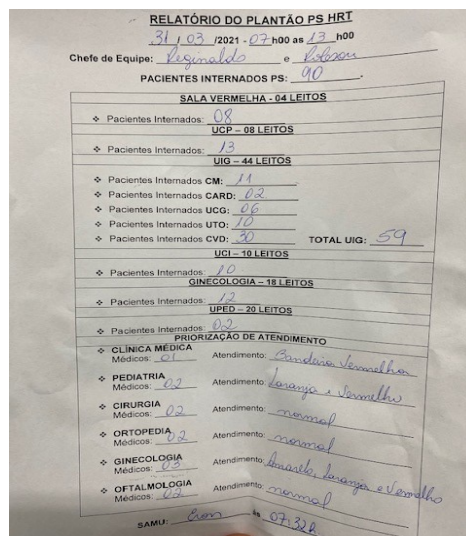 RELATÓRIO DO PLANTÃO PS HRT
31 / 03 /2021 - 07 h00 as 13 h00
Chefe de Equipe: Reginaldo e Robson
PACIENTES INTERNADOS PS: 90
SALA VERMELHA - 04 LEITOS
❖ Pacientes Internados: 08
UCP – 08 LEITOS
❖ Pacientes Internados: 13
UIG – 44 LEITOS
❖ Pacientes Internados CM: 11
❖ Pacientes Internados CARD: 02
❖ Pacientes Internados UCG: 06
❖ Pacientes Internados UTO: 10
❖ Pacientes Internados CVD: 30 TOTAL UIG: 59
UCI – 10 LEITOS
❖ Pacientes Internados: 10
GINECOLOGIA – 18 LEITOS
❖ Pacientes Internados: 12
UPED – 20 LEITOS
❖ Pacientes Internados: 02
PRIORIZAÇÃO DE ATENDIMENTO
❖ CLÍNICA MÉDICA
Médicos: 01 Atendimento: Bandeira Vermelha
❖ PEDIATRIA
Médicos: 02 Atendimento: Laranja e Vermelho
❖ CIRURGIA
Médicos: 02 Atendimento: normal
❖ ORTOPEDIA
Médicos: 02 Atendimento: normal
❖ GINECOLOGIA
Médicos: 03 Atendimento: Amarelo, Laranja e Vermelho
❖ OFTALMOLOGIA
Médicos: 02 Atendimento: normal
SAMU: às 07:32h